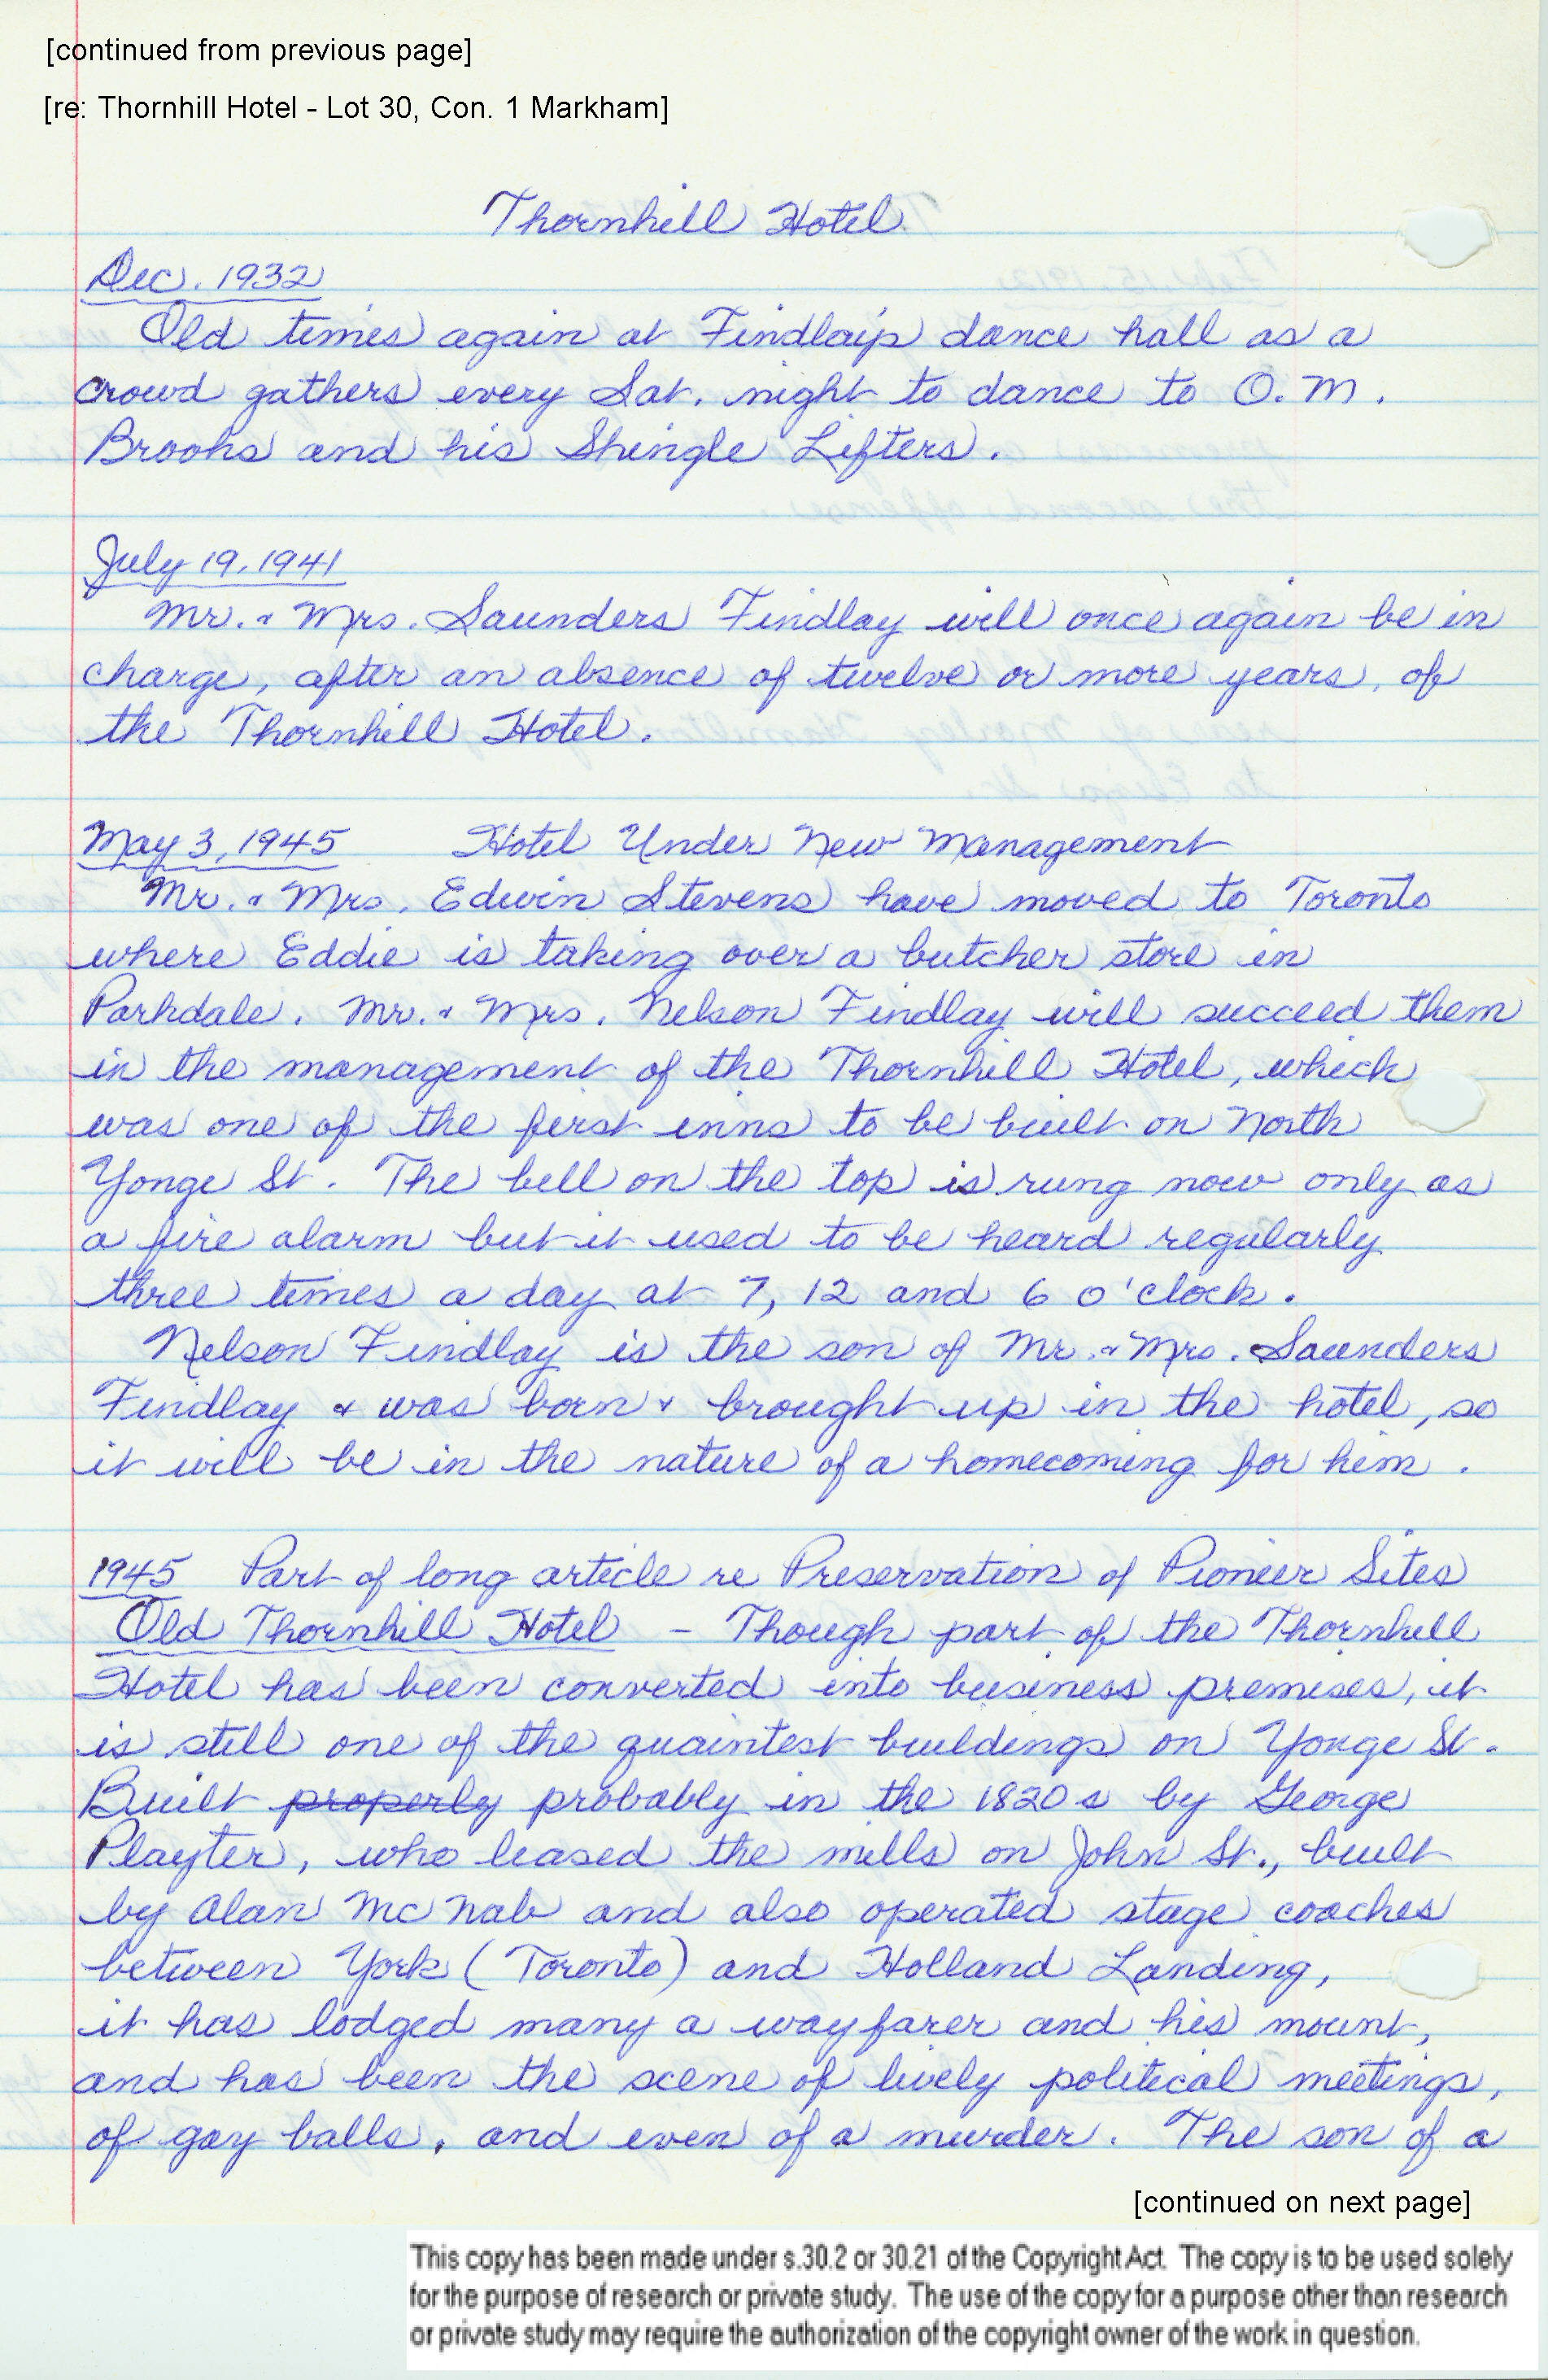 [continued from previous page]
[re: Thornhill Hotel - Lot 30, Con. 1 Markham]
Thornhill Hotel
Dec. 1932
Old times again at Findlay's dance hall as a
crowd gathers every Sat. night to dance to O. M.
Brooks and his Shingle Lifters.
July 19, 1941
Mr. & Mrs. Saunders Findlay will once again be in
charge, after an absence of twelve or more years, of
the Thornhill Hotel.
May 3, 1945 Hotel Under New Management
Mr. & Mrs. Edwin Stevens have moved to Toronto
where Eddie is taking over a butcher store in
Parkdale. Mr. & Mrs. Nelson Findlay will succeed them
in the management of the Thornhill Hotel, which
was one of the first inns to be built on North
Yonge St. The bell on the top is rung now only as
a fire alarm but it used to be heard regularly
three times a day at 7, 12 and 6 o'clock.
Nelson Findlay is the son of Mr. & Mrs. Saunders
Findlay & was born & brought up in the hotel, so
it will be in the nature of a homecoming for him.
1945 Part of long article re Preservation of Pioneer Sites
Old Thornhill Hotel - Though part of the Thornhill
Hotel has been converted into business premises, it
is still one of the quaintest buildings on Yonge St.
Built properly probably in the 1820s by George
Playter, who leased the mills on John St., built
by Alan McNab and also operated stage coaches
between York (Toronto) and Holland Landing,
it has lodged many a wayfarer and his mount,
and has been the scene of lively political meetings,
of gay balls, and even of a murder. The son of a
[continued on next page]
This copy has been made under s.30.2 or 30.21 of the Copyright Act. The copy is to be used solely
for the purpose of research or private study. The use of the copy for a purpose other than research
or private study may require the authorization of the copyright owner of the work in question.